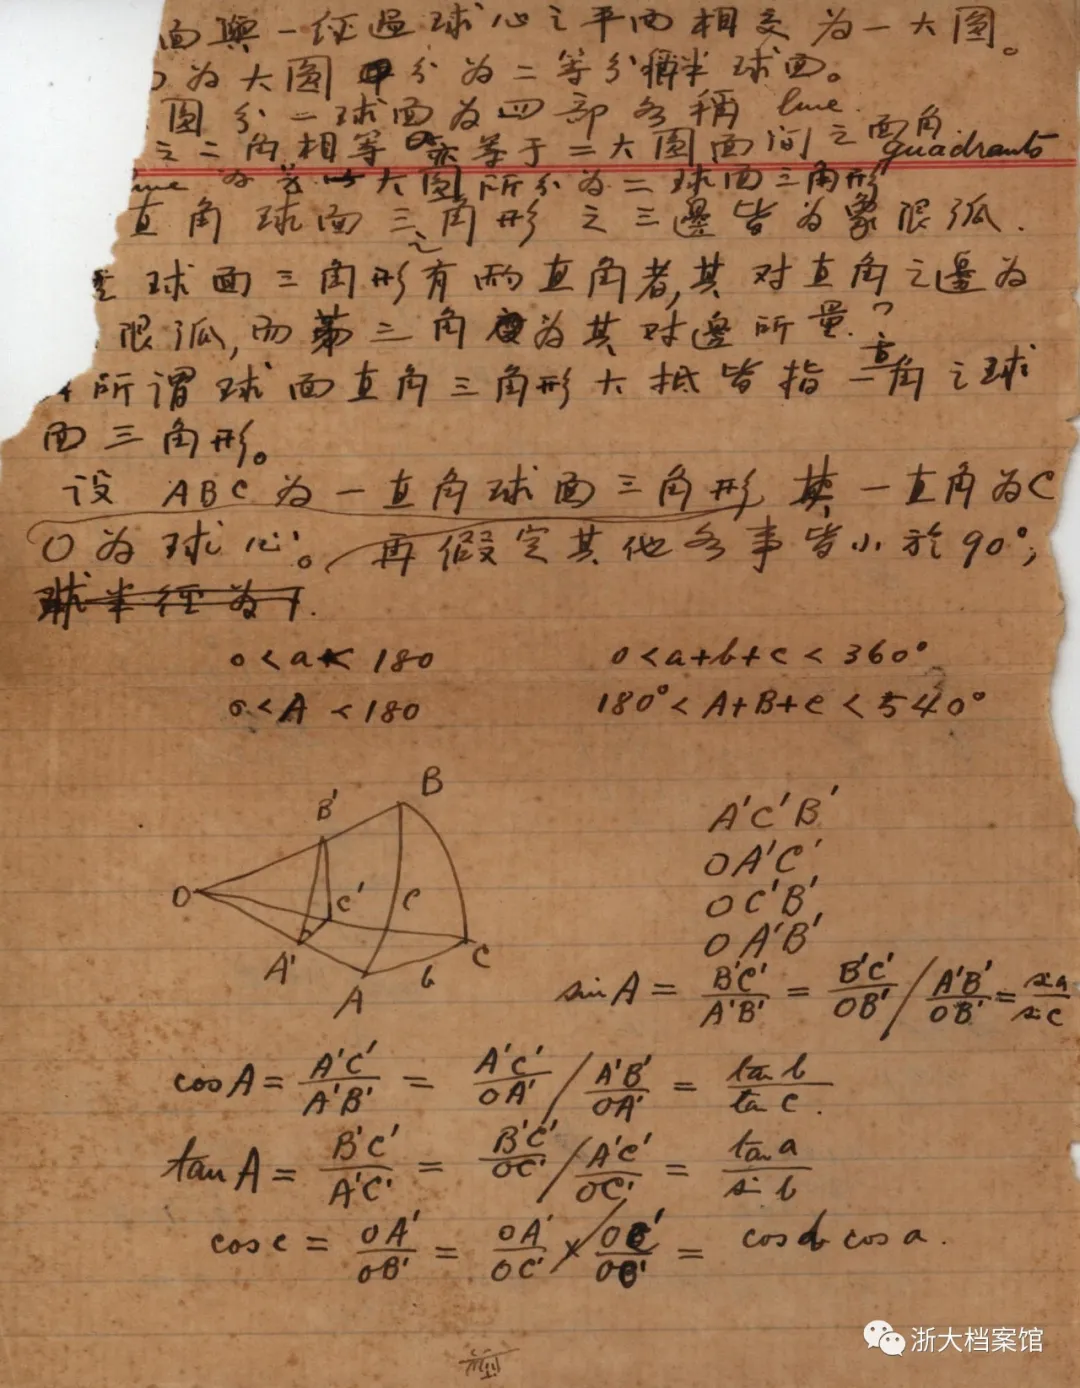 面與一经過球心之平面相交为一大圆。
为大圆中分为二等分稱半球面。
圆分一球面为四部各稱 lune.
之二角相等亦等于二大圆面间之面角.
quadrants
lune 为大圆所分为二球面三角形
直角球面三角形之三邊皆为象限弧.
球面三角形之有兩直角者,其对直角之邊为
限弧,而第三角度为其对邊所量.
所谓球面直角三角形大抵皆指一直角之球
面三角形。
设 ABC 为一直角球面三角形 其一直角为C
O为球心。再假定其他各事皆小於90°;
球半径为1.
0<a<180 0<a+b+c<360°
0<A<180 180°<A+B+C<540°
B
B'
O
C'
C
A'
A
b
C
A'C'B'
OA'C'
OC'B'
OA'B'
sin A = B'C'/A'B' = B'C'/OB' / A'B'/OB' = si a/si c
cos A = A'C'/A'B' = A'C'/OA' / A'B'/OA' = tan b/tan c.
tan A = B'C'/A'C' = B'C'/OC' / A'C'/OC' = tan a/si b
cos c = OA'/OB' = OA'/OC' × OC'/OB' = cos b cos a.
浙大档案馆